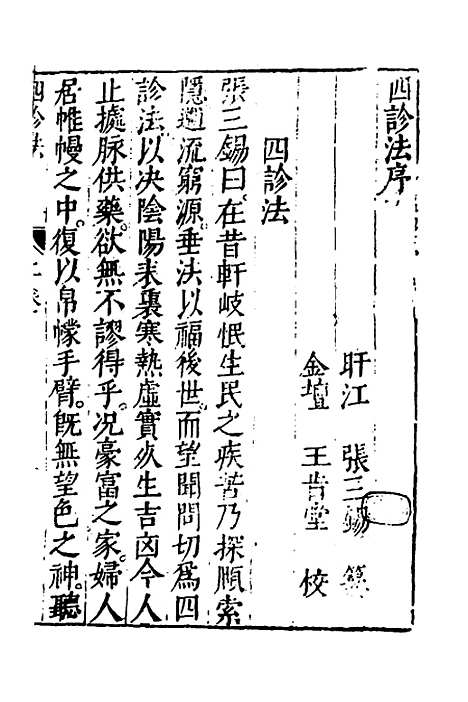 四診法序
盱江 張三錫 纂
金壇 王肯堂 校
四診法
張三錫曰在昔軒岐愍生民之疾苦乃探賾索
隱遡流窮源垂法以福後世而望聞問切為四
診法以决陰陽表裏寒熱虛實死生吉凶今人
止據脉供藥欲無不謬得乎况豪富之家婦人
居帷幔之中復以帛幪手臂既無望色之神聽
四診法